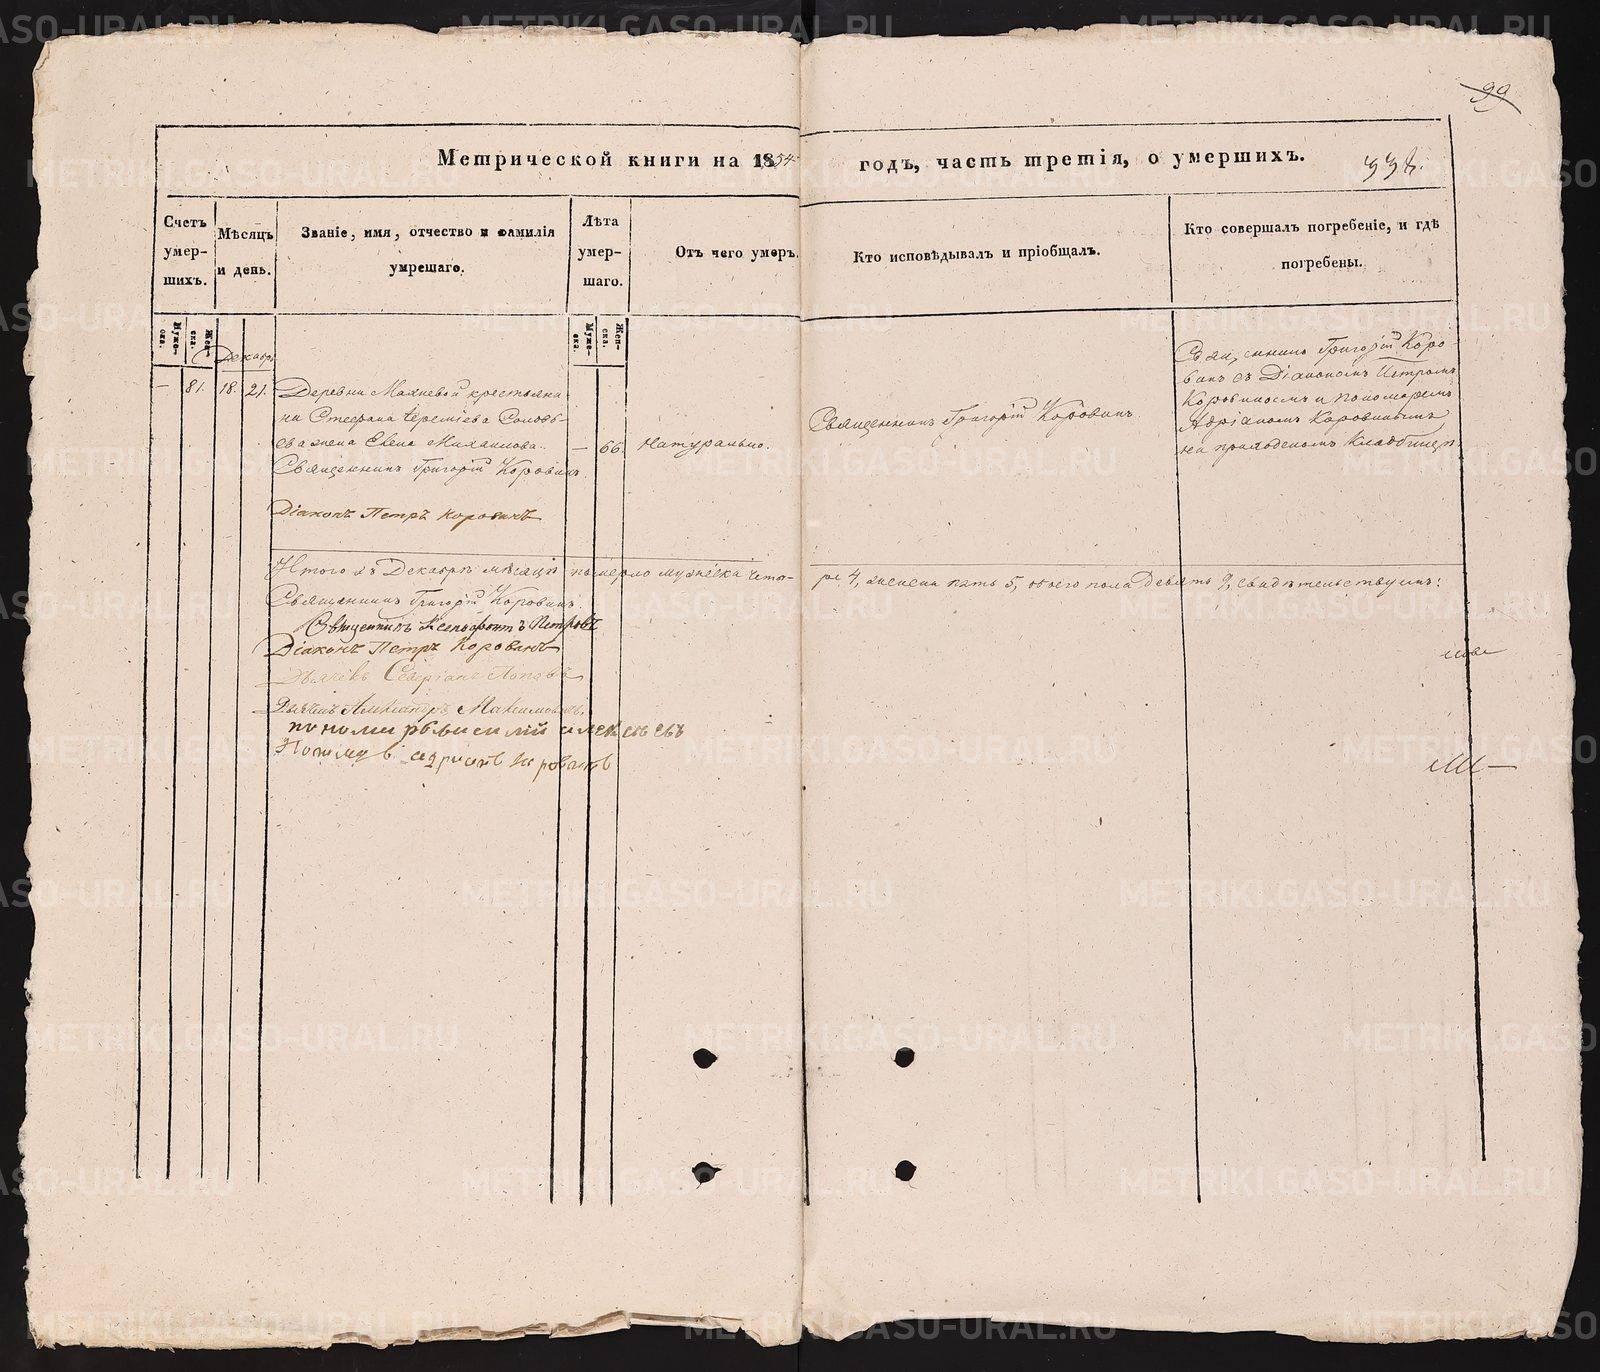 99
Метрической книги на 1854 годъ, часть третія, о умершихъ.
338.
Счетъ умер-шихъ.
Мѣсяцъ и день.
Званіе, имя, отчество и фамилія умершаго.
Лѣта умер-шаго.
Отъ чего умеръ.
Кто исповѣдывалъ и пріобщалъ.
Кто совершалъ погребеніе, и гдѣ погребены.
Муже-ска.
Жен-ска.
Муже-ска.
Жен-ска.
Декабрь
— 81. 18. 21.
Деревни Махневой крестьяни-
на Стефана Соловь-
ева жена Елена Михаилова. — 66. Натурально.
Священникъ Григорій Коровинъ
Діаконъ Петръ Коровинъ
Священникъ Григорій Коровинъ.
Священникъ Григорій Коро-
винъ съ Діакономъ Петромъ
Коровиномъ и пономаремъ
Адріаномъ Коровинымъ
на приходскомъ кладбищѣ.
Итого въ Декабрѣ мѣсяцѣ померло мужеска четы-
ре 4, женска пять 5, обоего пола Девять 9, свидѣтельствуемъ:
Священникъ Григорій Коровинъ.
Священникъ Ксенофонтъ Петровъ
Діаконъ Петръ Коровинъ
Дьячекъ Северіанъ Поповъ
Дьячекъ Александръ Максимовъ
METRIKI.GASO-URAL.RU